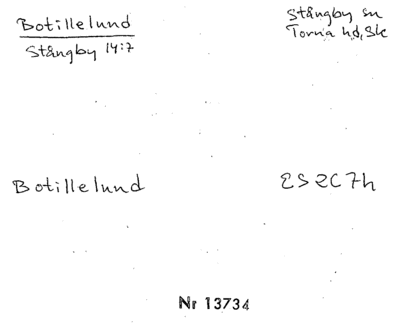 Botillelund
Stångby 14:7
Stångby sn
Torna hd, Sk
Botillelund
2S 2C 7h
Nr 13734